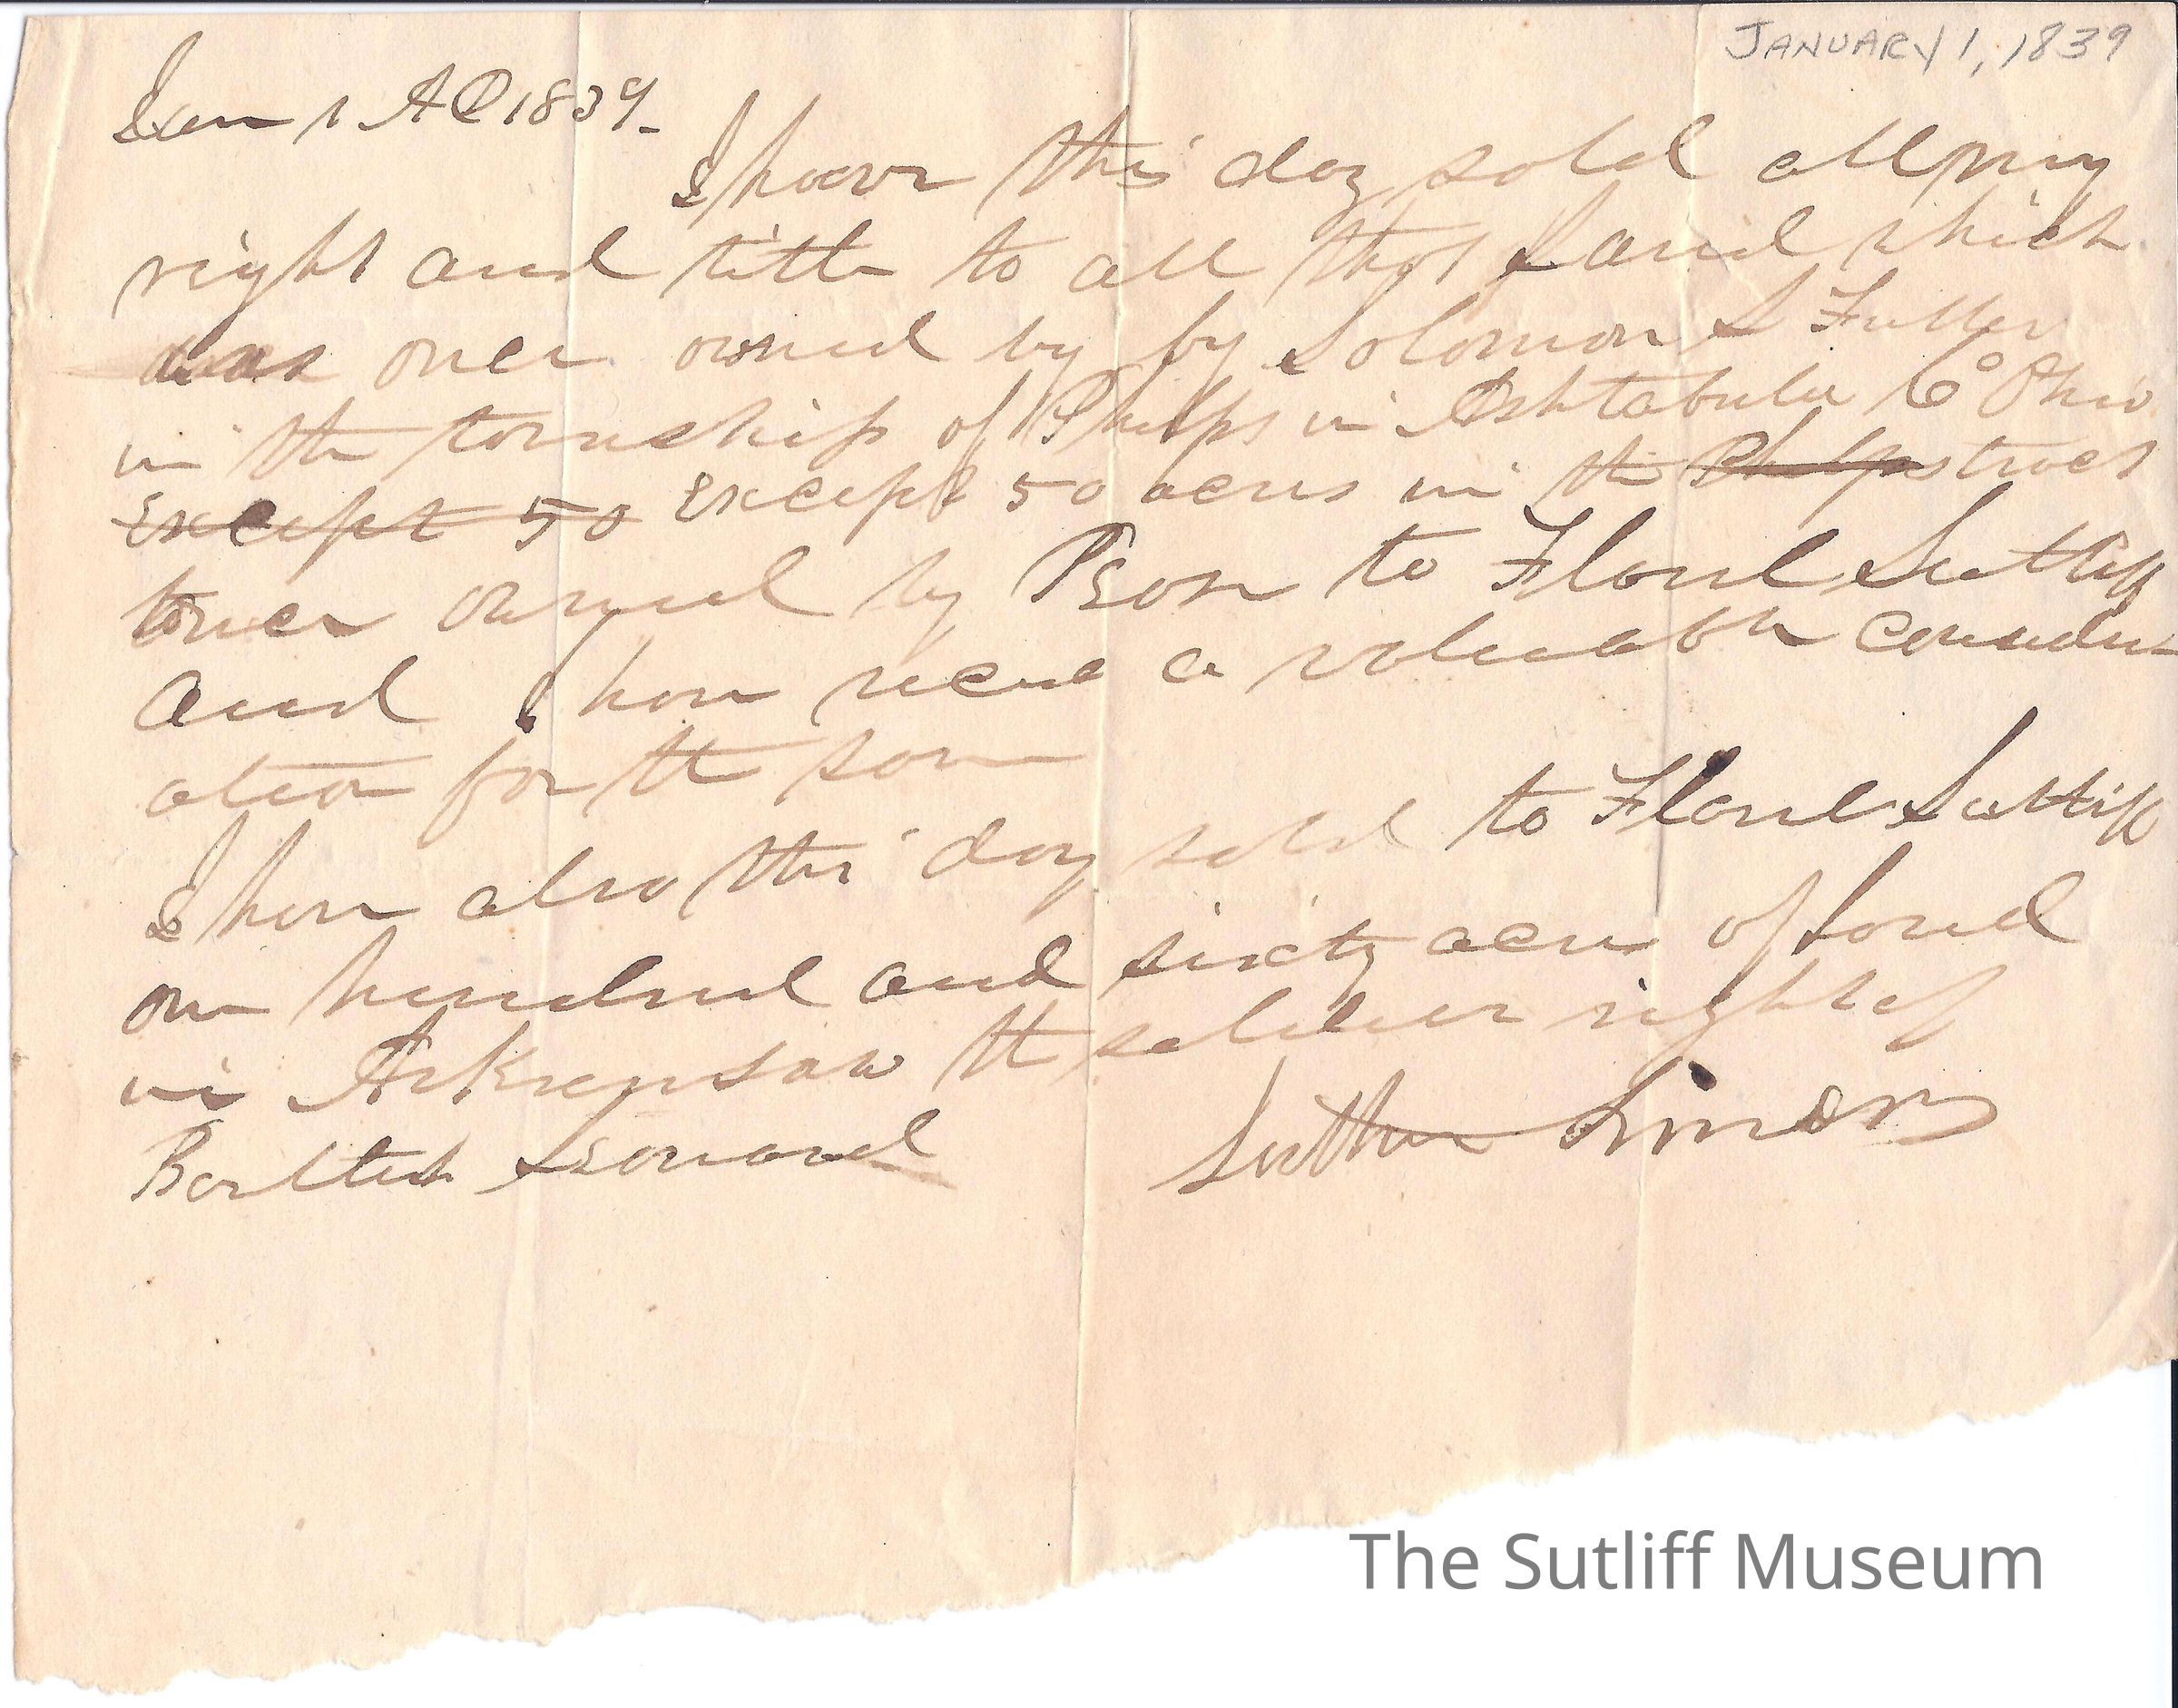 JANUARY 1, 1839
Jan 1 AD 1839-
I have this day sold all my
right and title to all that Land which
was once owned by by Solomon S Fuller
in the township of Phelps in Ashtabula Co Ohio
Except 50 Except 50 acres in the Phelps tract
once owned by to Flavel Sutliff
and I have receive a valuable consider-
ation for the same
I have also this day sold to Flavel Sutliff
one hundred and sixty acres of land
in Arkensaw the soldier right of
Bartlett Leonard Luther Simons
The Sutliff Museum